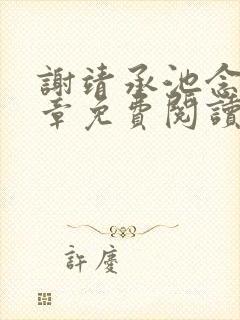 謝靖承池念
章免費閱讀
許慶